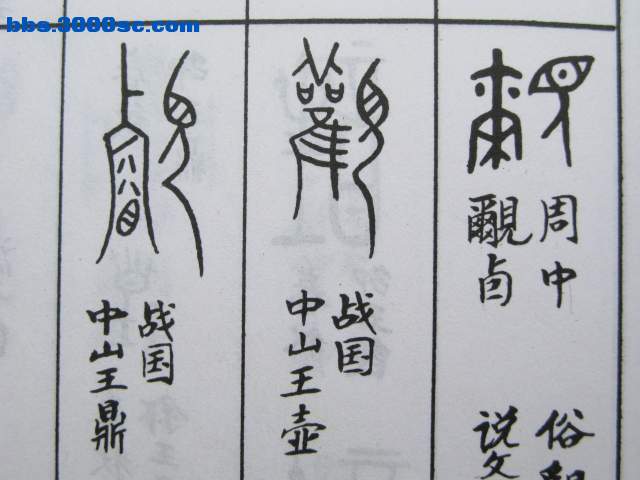 bbs.3000sc.com
周中
覼卣
俗
说文
战国
中山王壶
战国
中山王鼎